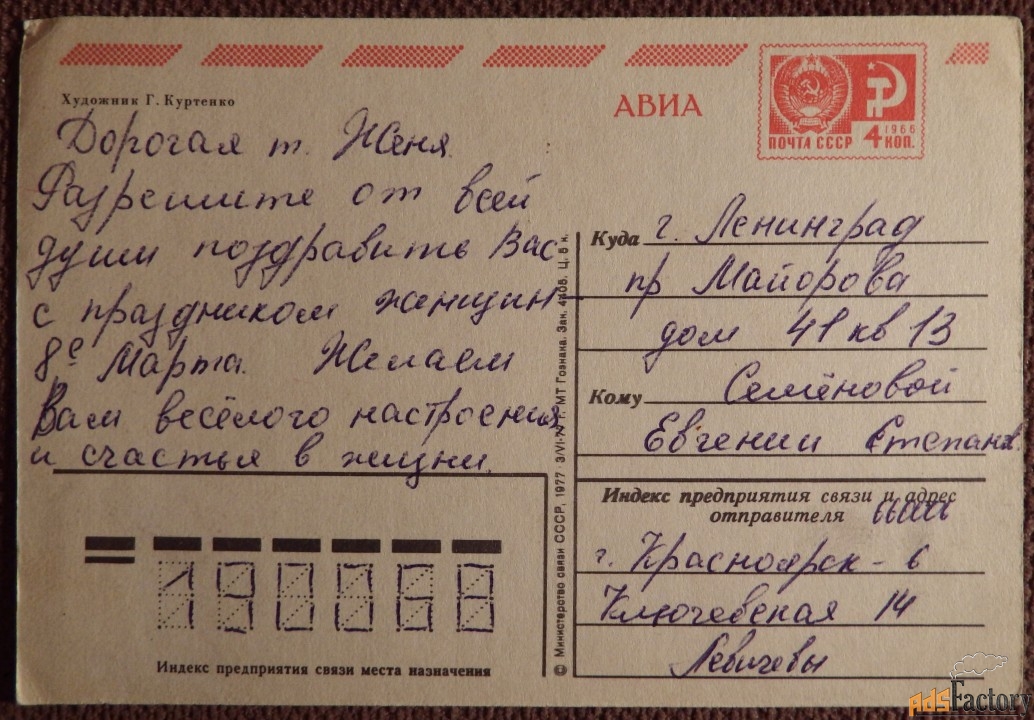 Художник Г. Куртенко
АВИА
ПОЧТА СССР 4 1966 КОП.
Дорогая т. Женя.
Разрешите от всей
души поздравить Вас
с праздником женщин
8е Марта. Желаем
Вам весёлого настроения
и счастья в жизни.
Куда г. Ленинград
пр Майорова
дом 41 кв 13
Кому Семёновой
Евгении Степан.
Индекс предприятия связи и адрес
отправителя
г. Красноярск - 6
Ключевская 14
Левичевы
190068
Индекс предприятия связи места назначения
© Министерство связи СССР, 1977 3/VI-77 г. МТ Гознака. Зак. Ц. 5 к.
AdsFactory